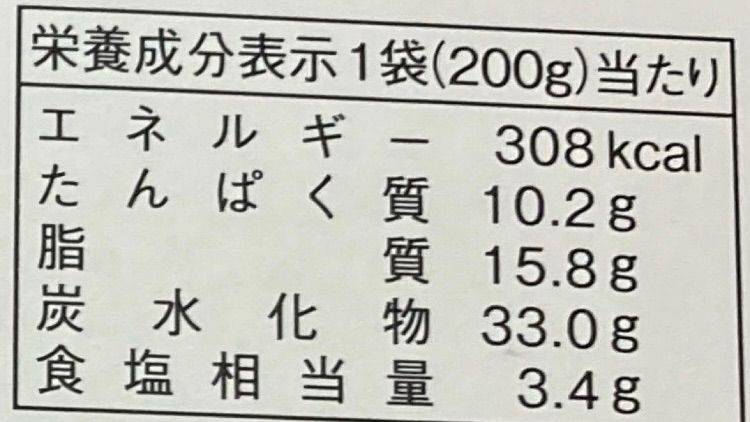 栄養成分表示1袋(200g)当たり
エネルギー 308kcal
たんぱく質 10.2g
脂質 15.8g
炭水化物 33.0g
食塩相当量 3.4g